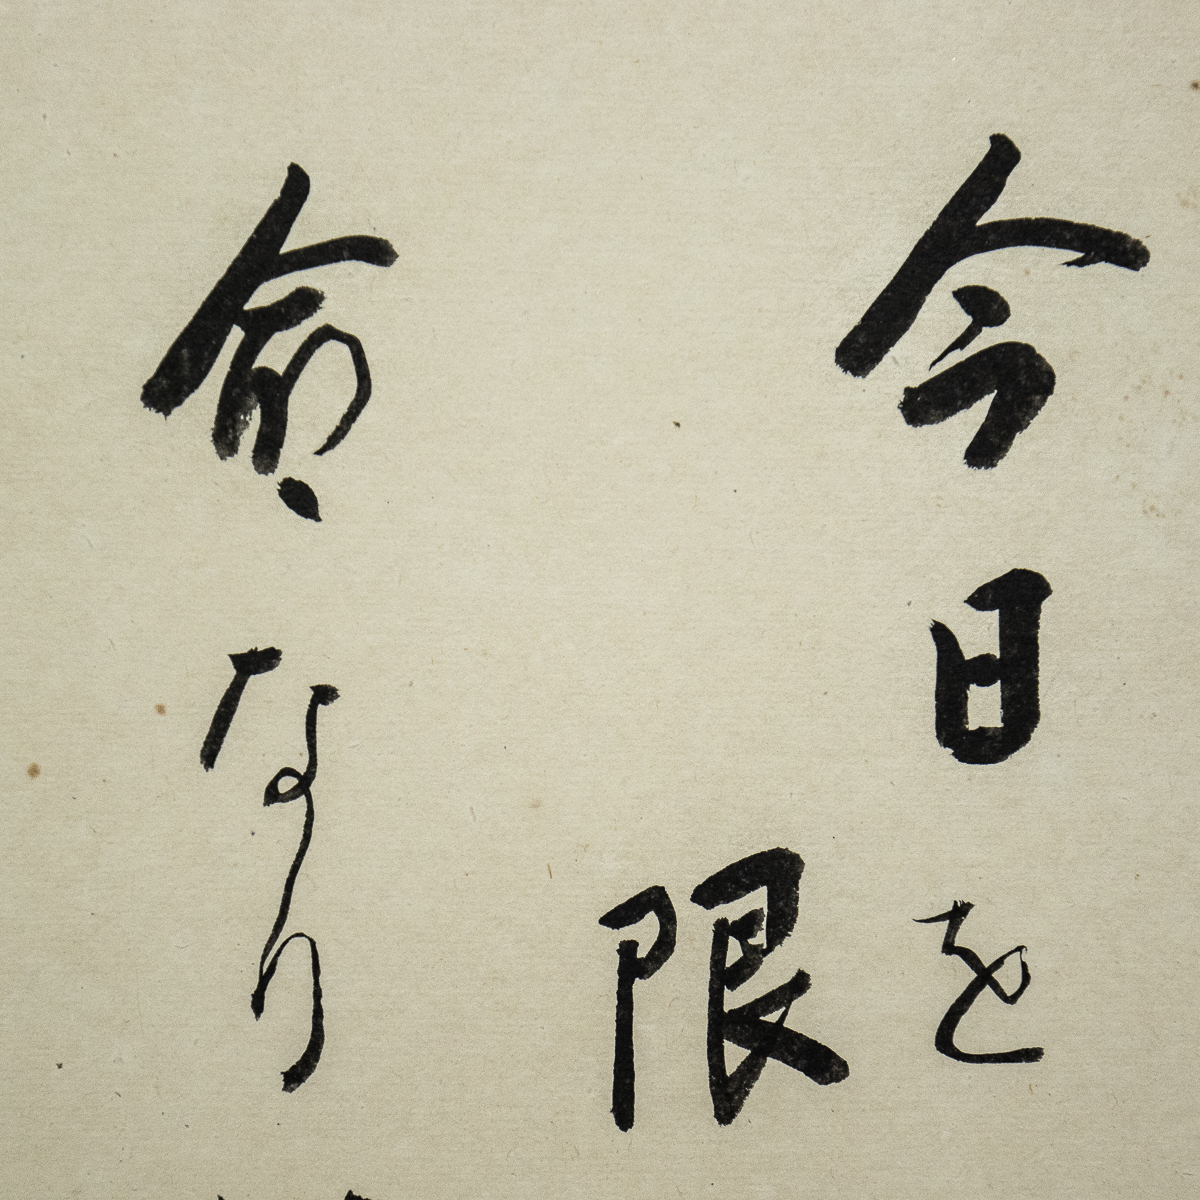 今日を
限
命なり